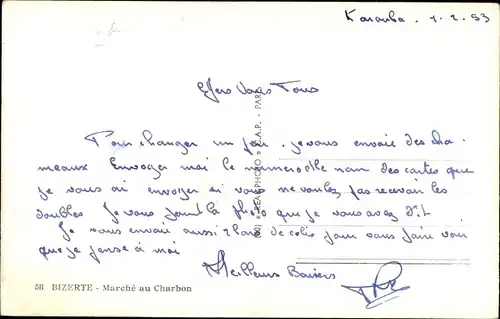 Karouba. 1.2.53
Chers Vous Tous
Pour changer un peu. je vous envoie des cha
meaux Envoyer moi le numero et le nom des cartes que
je vous ai envoyer si vous ne voulez pas recevoir les
doubles Je vous joint la photo que je vous avez dit
Je vous envoie aussi 2 bons de colis pour vous faire voir
que je pense à moi
Meilleurs Baisers
REAL-PHOTO C.A.P. - PARIS
58 BIZERTE - Marché au Charbon